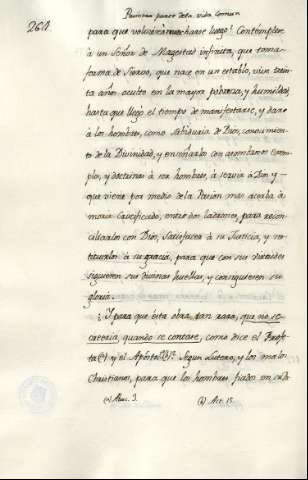 Primera parte de la vida Comun
264.
para que volviera a marcharse luego! Contemplese
à un Señor de Magestad infinita, que toma
forma de Siervo, que nace en un establo, vive trein-
ta años oculto en la mayor pobreza, y humildad,
hasta que llegó el tiempo de manifestarse, y darse
à los hombres, como Sabiduria de Dios, conocimien-
to de la Divinidad, y enseñarlos con exem-
plos, y doctrinas à ser hombres, à servir à Dios y
que viene por medio de la Pasion mas acerba à
morir Crucificado, entre dos ladrones, para recon-
ciliarlos con Dios, satisfacer à su Justicia, y res-
tituirlos à su gracia, para que con sus virtudes
siguiesen sus divinas huellas, y consiguiesen su
gloria.
¿Y para que esta obra tan rara, que no se
creeria, quando se contase, como dice el Profe-
ta (a) y el Apóstol (b)? Segun Lutero, y los malos
Christianos, para que los hombres fiados en
(a) Abac. 1. (b) Act. 13.